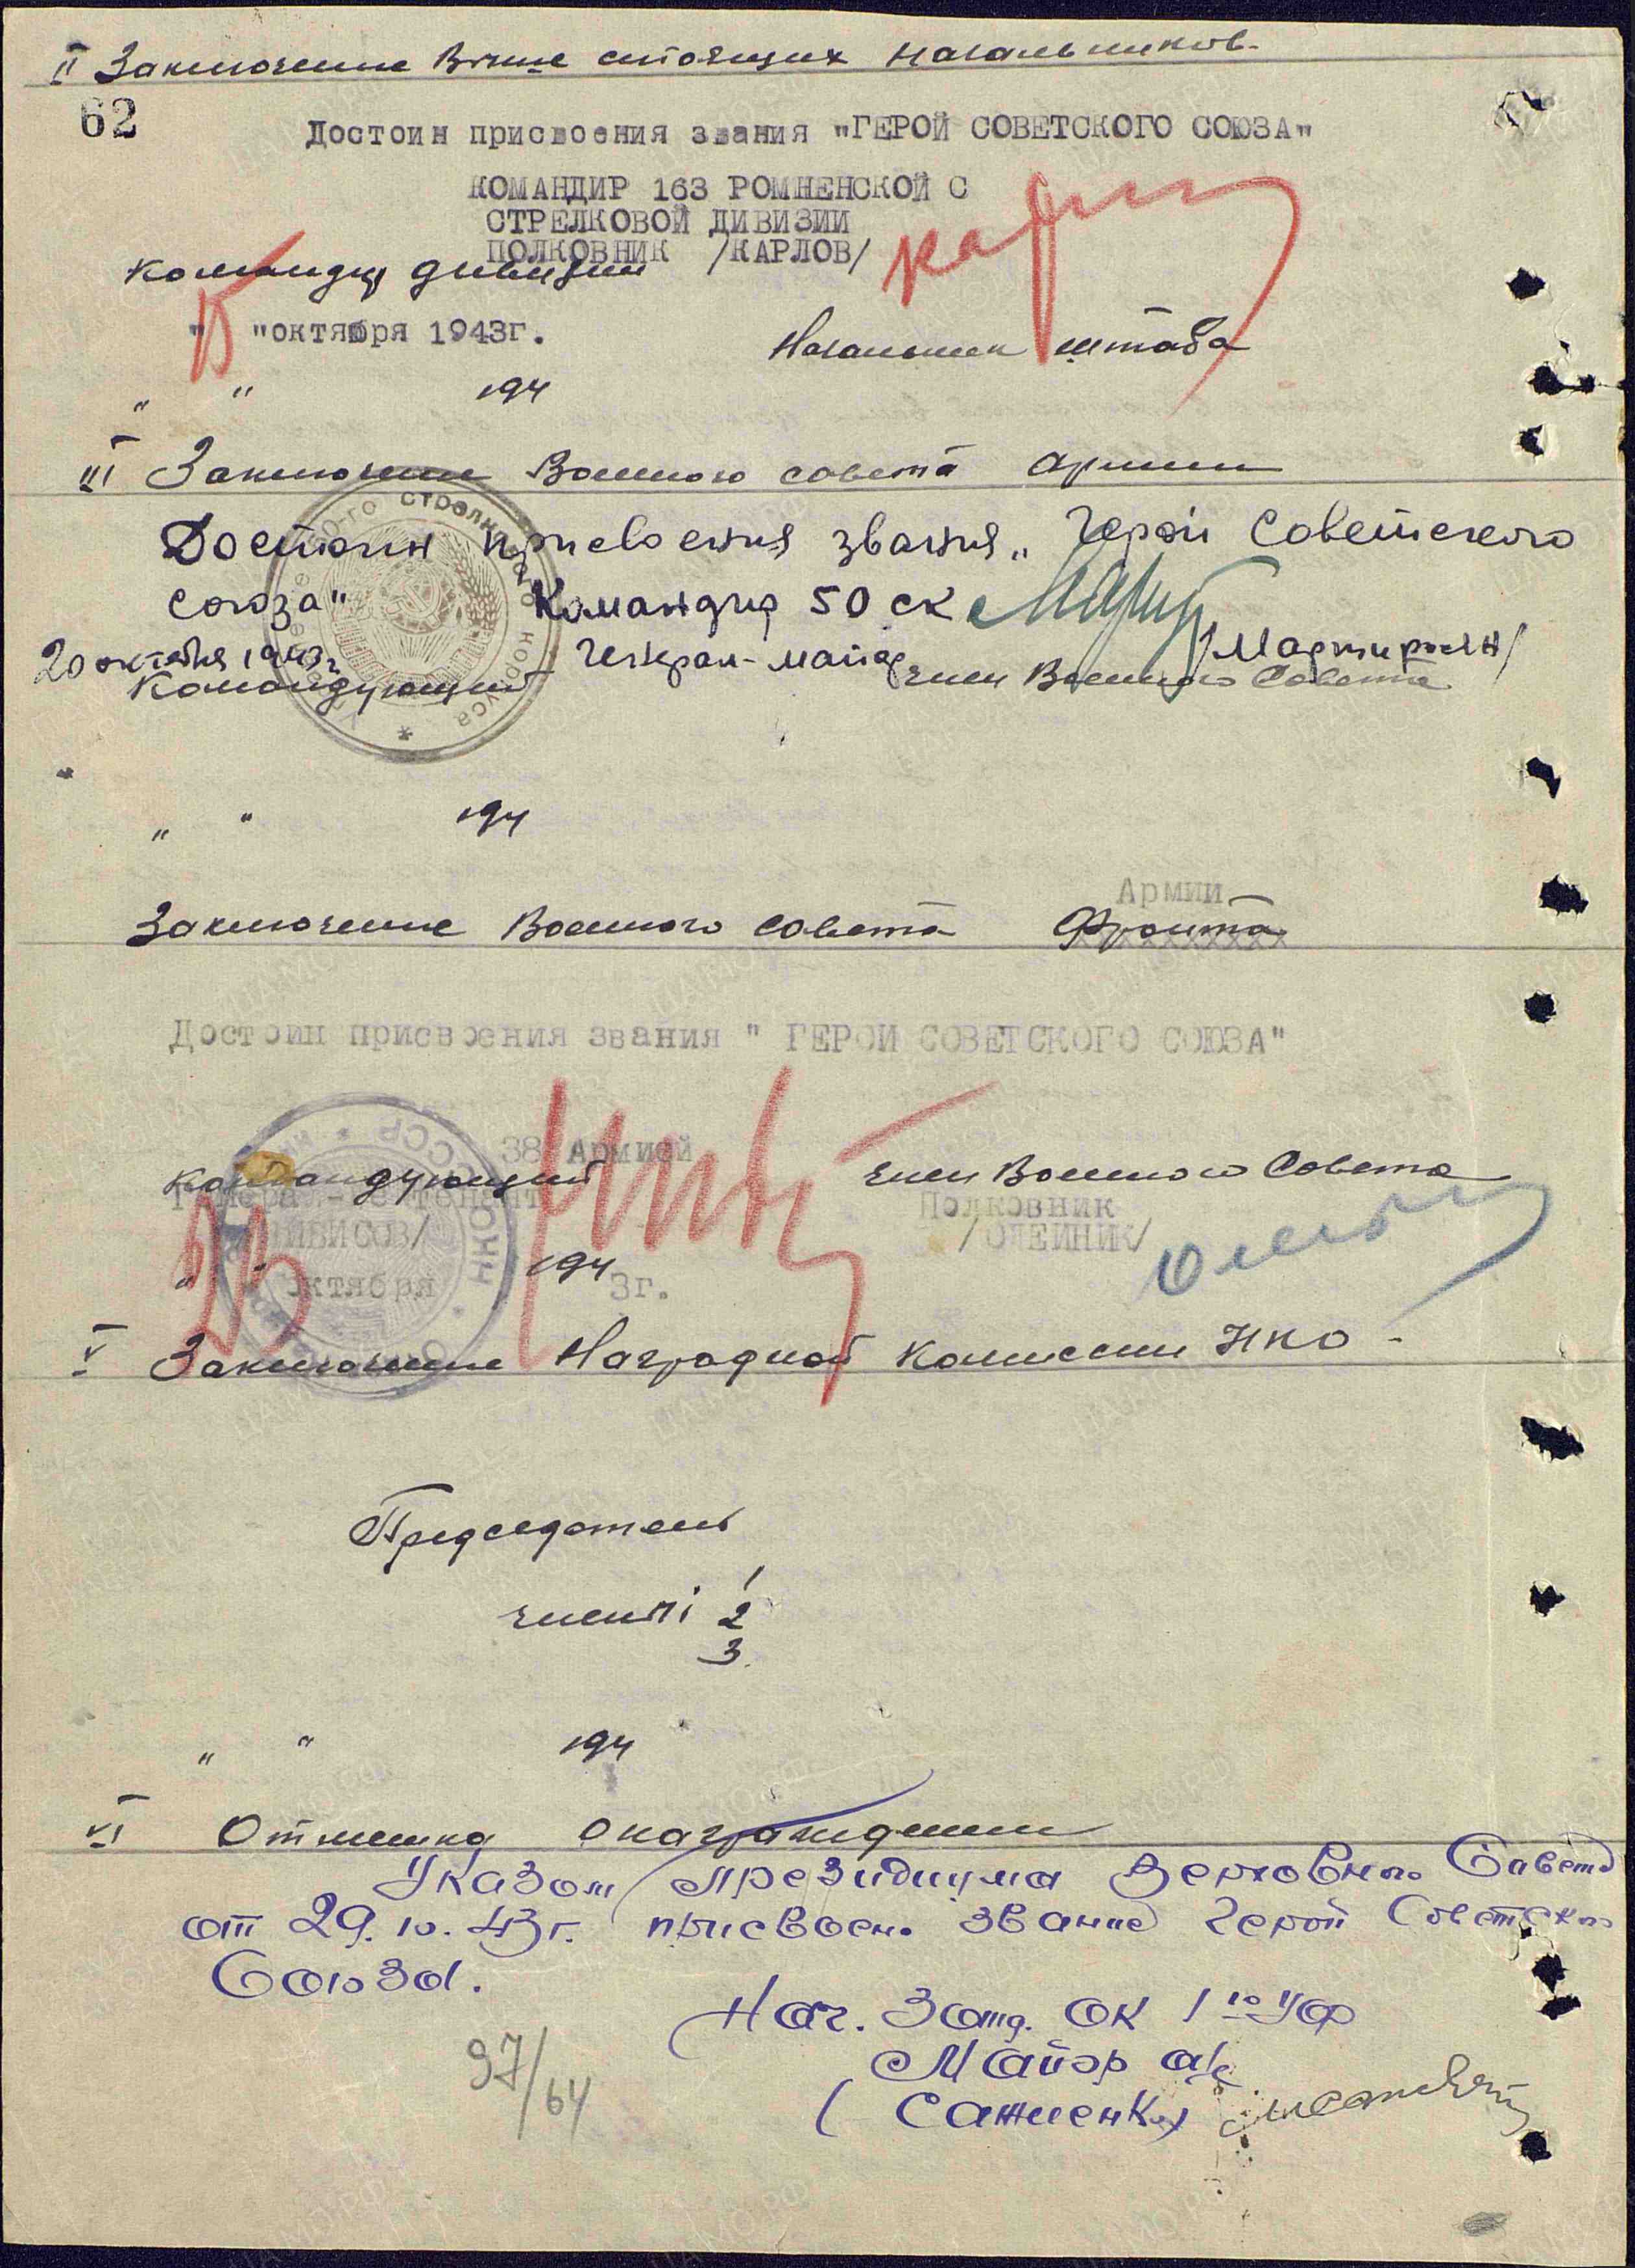 II Заключение Выше стоящих Начальников.
62
Достоин присвоения звания "ГЕРОЙ СОВЕТСКОГО СОЮЗА"
КОМАНДИР 163 РОМНЕНСКОЙ С
СТРЕЛКОВОЙ ДИВИЗИИ
ПОЛКОВНИК /КАРЛОВ/
Командир дивизии
" "октября 1943г.
Начальник штаба
" " 194
III Заключение Военного совета армии
Достоин присвоения звания „Герой Советского
Союза" Командир 50 ск
20 октября 1943г Генерал-майор /Мартиросян/
Командующий член Военного Совета
" " 194
Армии
Заключение Военного совета Фронта
Достоин присвоения звания " ГЕРОЙ СОВЕТСКОГО СОЮЗА"
38 Армией
Командующий член Военного Совета
Генерал-лейтенант Полковник
ЧИБИСОВ/ /ОЛЕЙНИК/
" " октября 1943г.
V Заключение Наградной комиссии НКО -
Председатель
члены 1
2
3
" " 194
VI Отметка о награждении
Указом Президиума Верховного Совета
от 29.10.43г. присвоено звание Герой Советского
Союза.
Нач. 3 отд. ОК 1го УФ
Майор а/с
(Сажиенко)
97/64